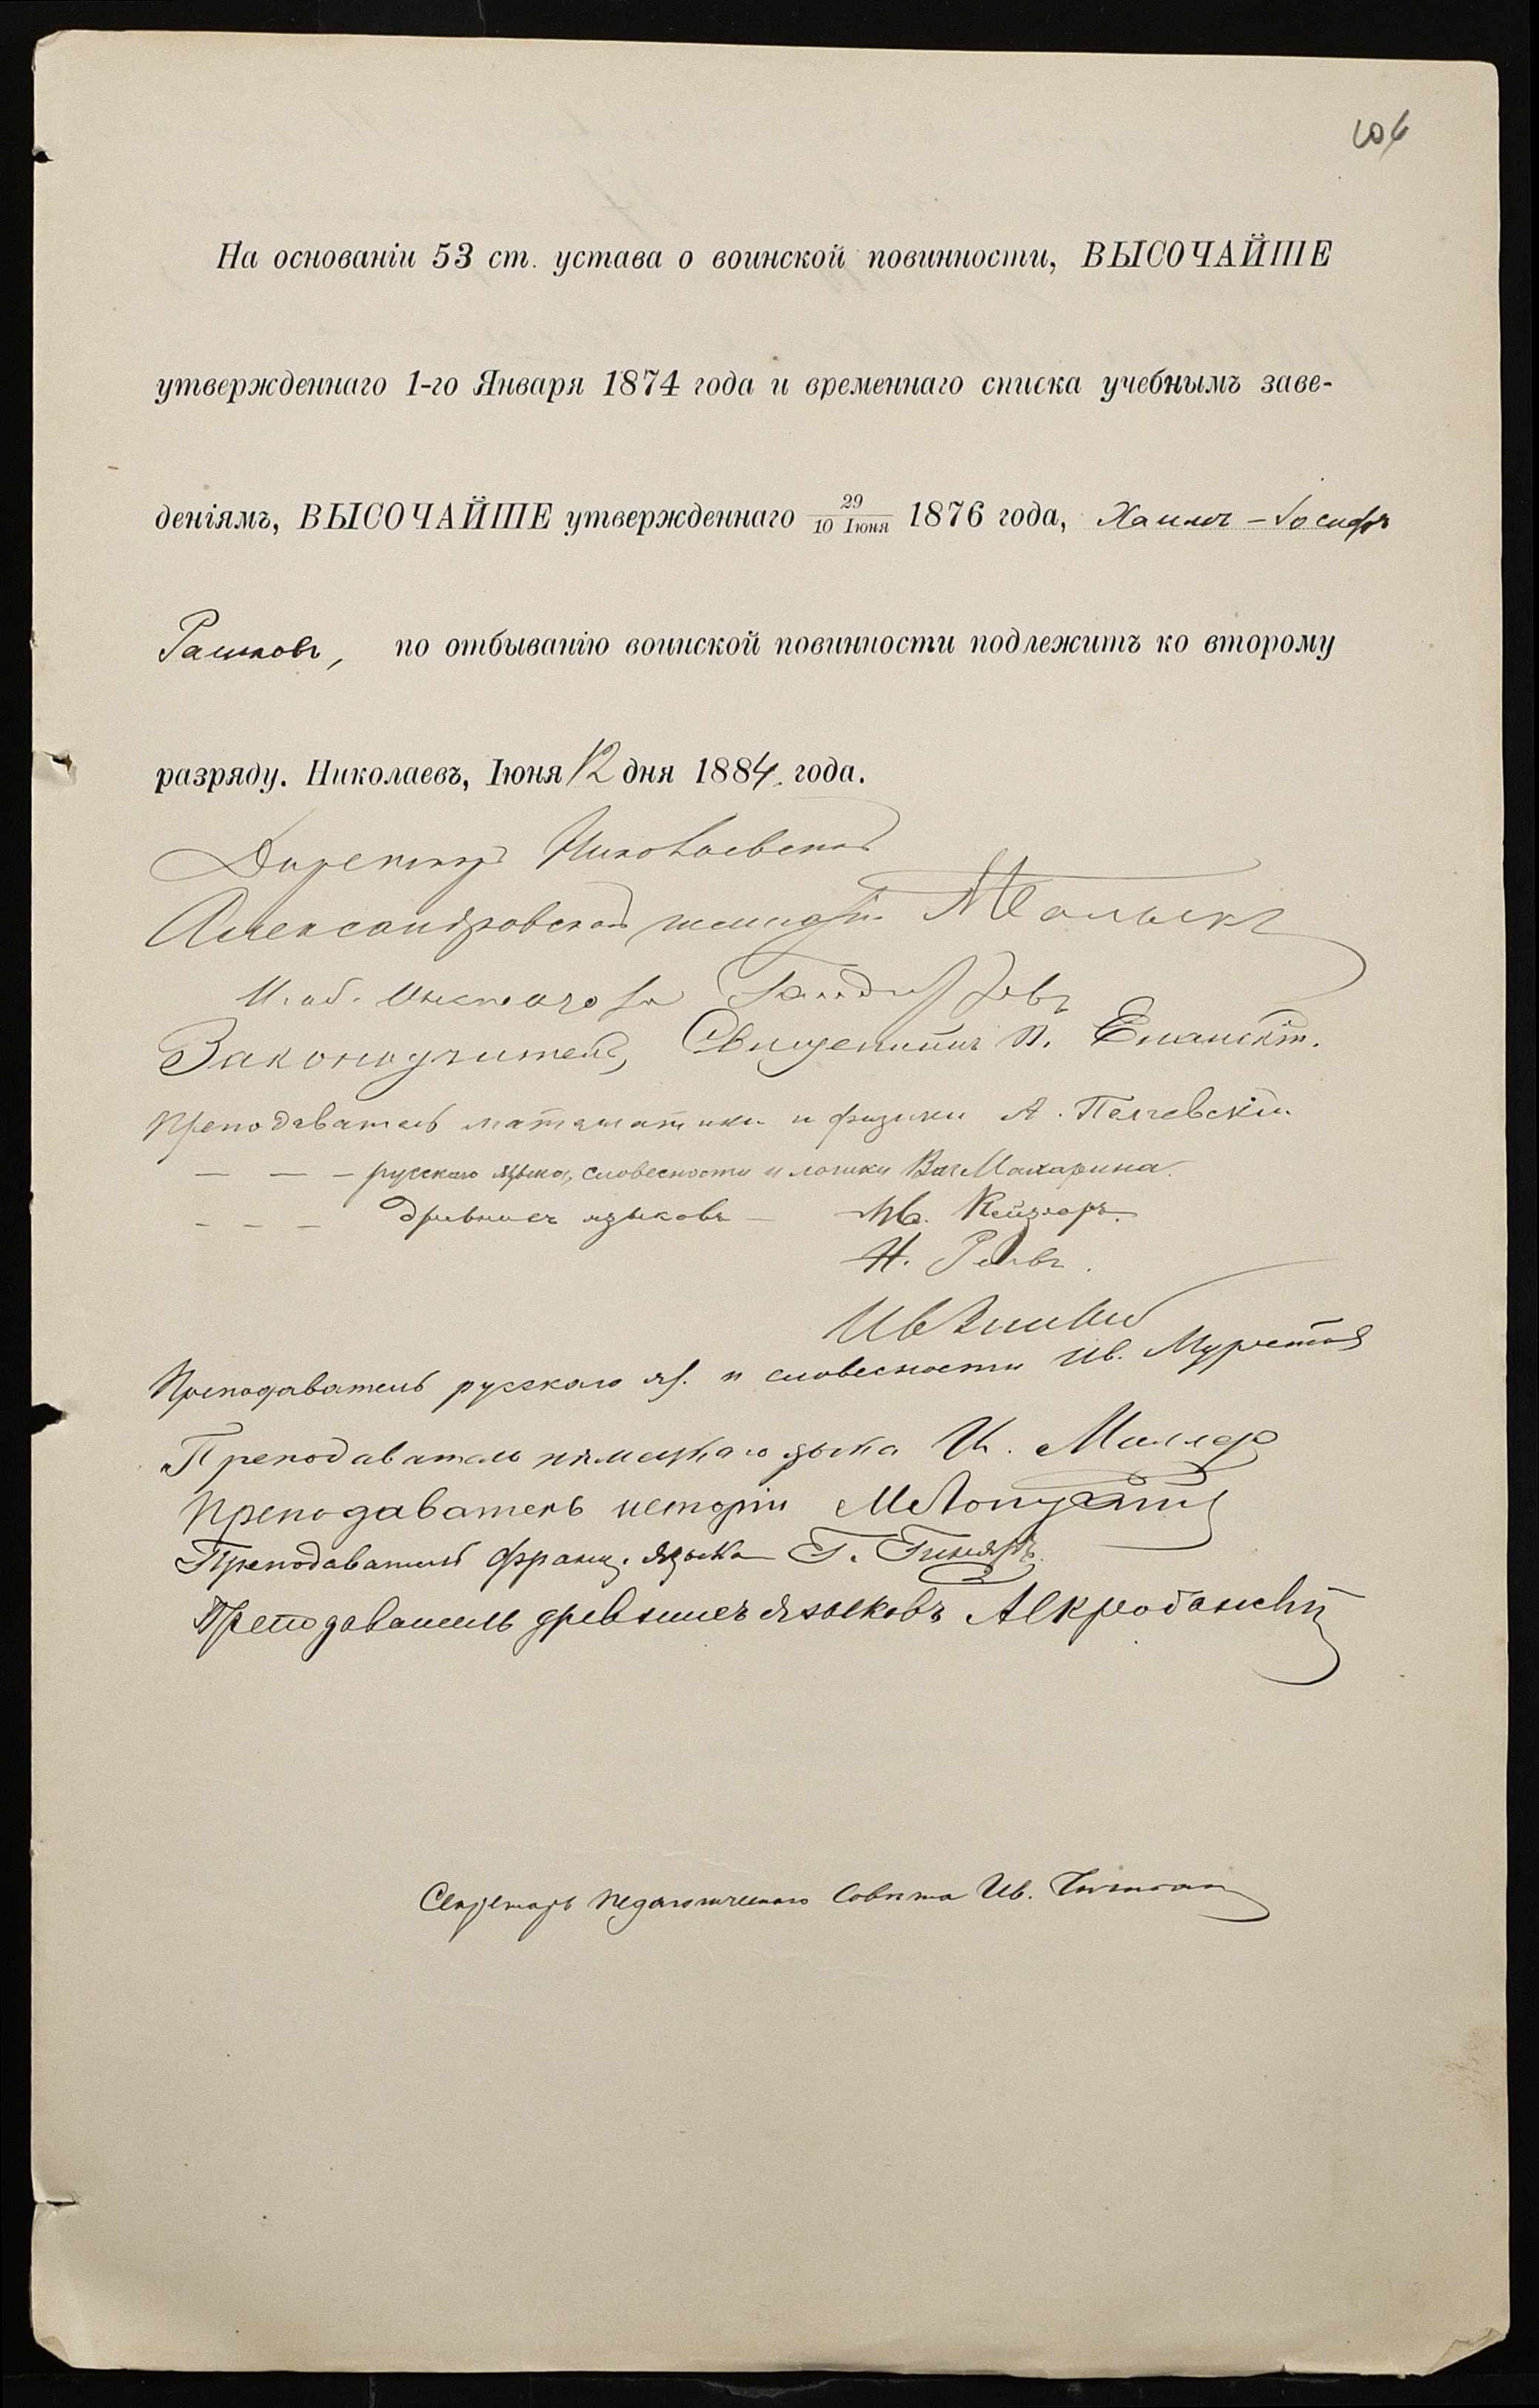 На основаніи 53 ст. устава о воинской повинности, ВЫСОЧАЙШЕ
утвержденнаго 1-го Января 1874 года и временнаго списка учебнымъ заве-
деніямъ, ВЫСОЧАЙШЕ утвержденнаго 29/10 Іюня 1876 года, Хаимъ-Іосифъ
Рашковъ, по отбыванію воинской повинности подлежитъ ко второму
разряду. Николаевъ, Іюня 12 дня 1884 года.
Директоръ Николаевской
Александровской гимназіи
И. об. Инспектора
Законоучитель, Священникъ
Преподаватель математики и физики А.
— — — русскаго языка, словесности и логики Макарина.
— — — древнихъ языковъ —
Н.
Преподаватель русскаго яз. и словесности Ив.
Преподаватель нѣмецкаго языка И. Миллер
Преподаватель исторіи
Преподаватель франц. языка Г.
Преподаватель древнихъ языковъ
Секретарь Педагогическаго Совѣта Ив.